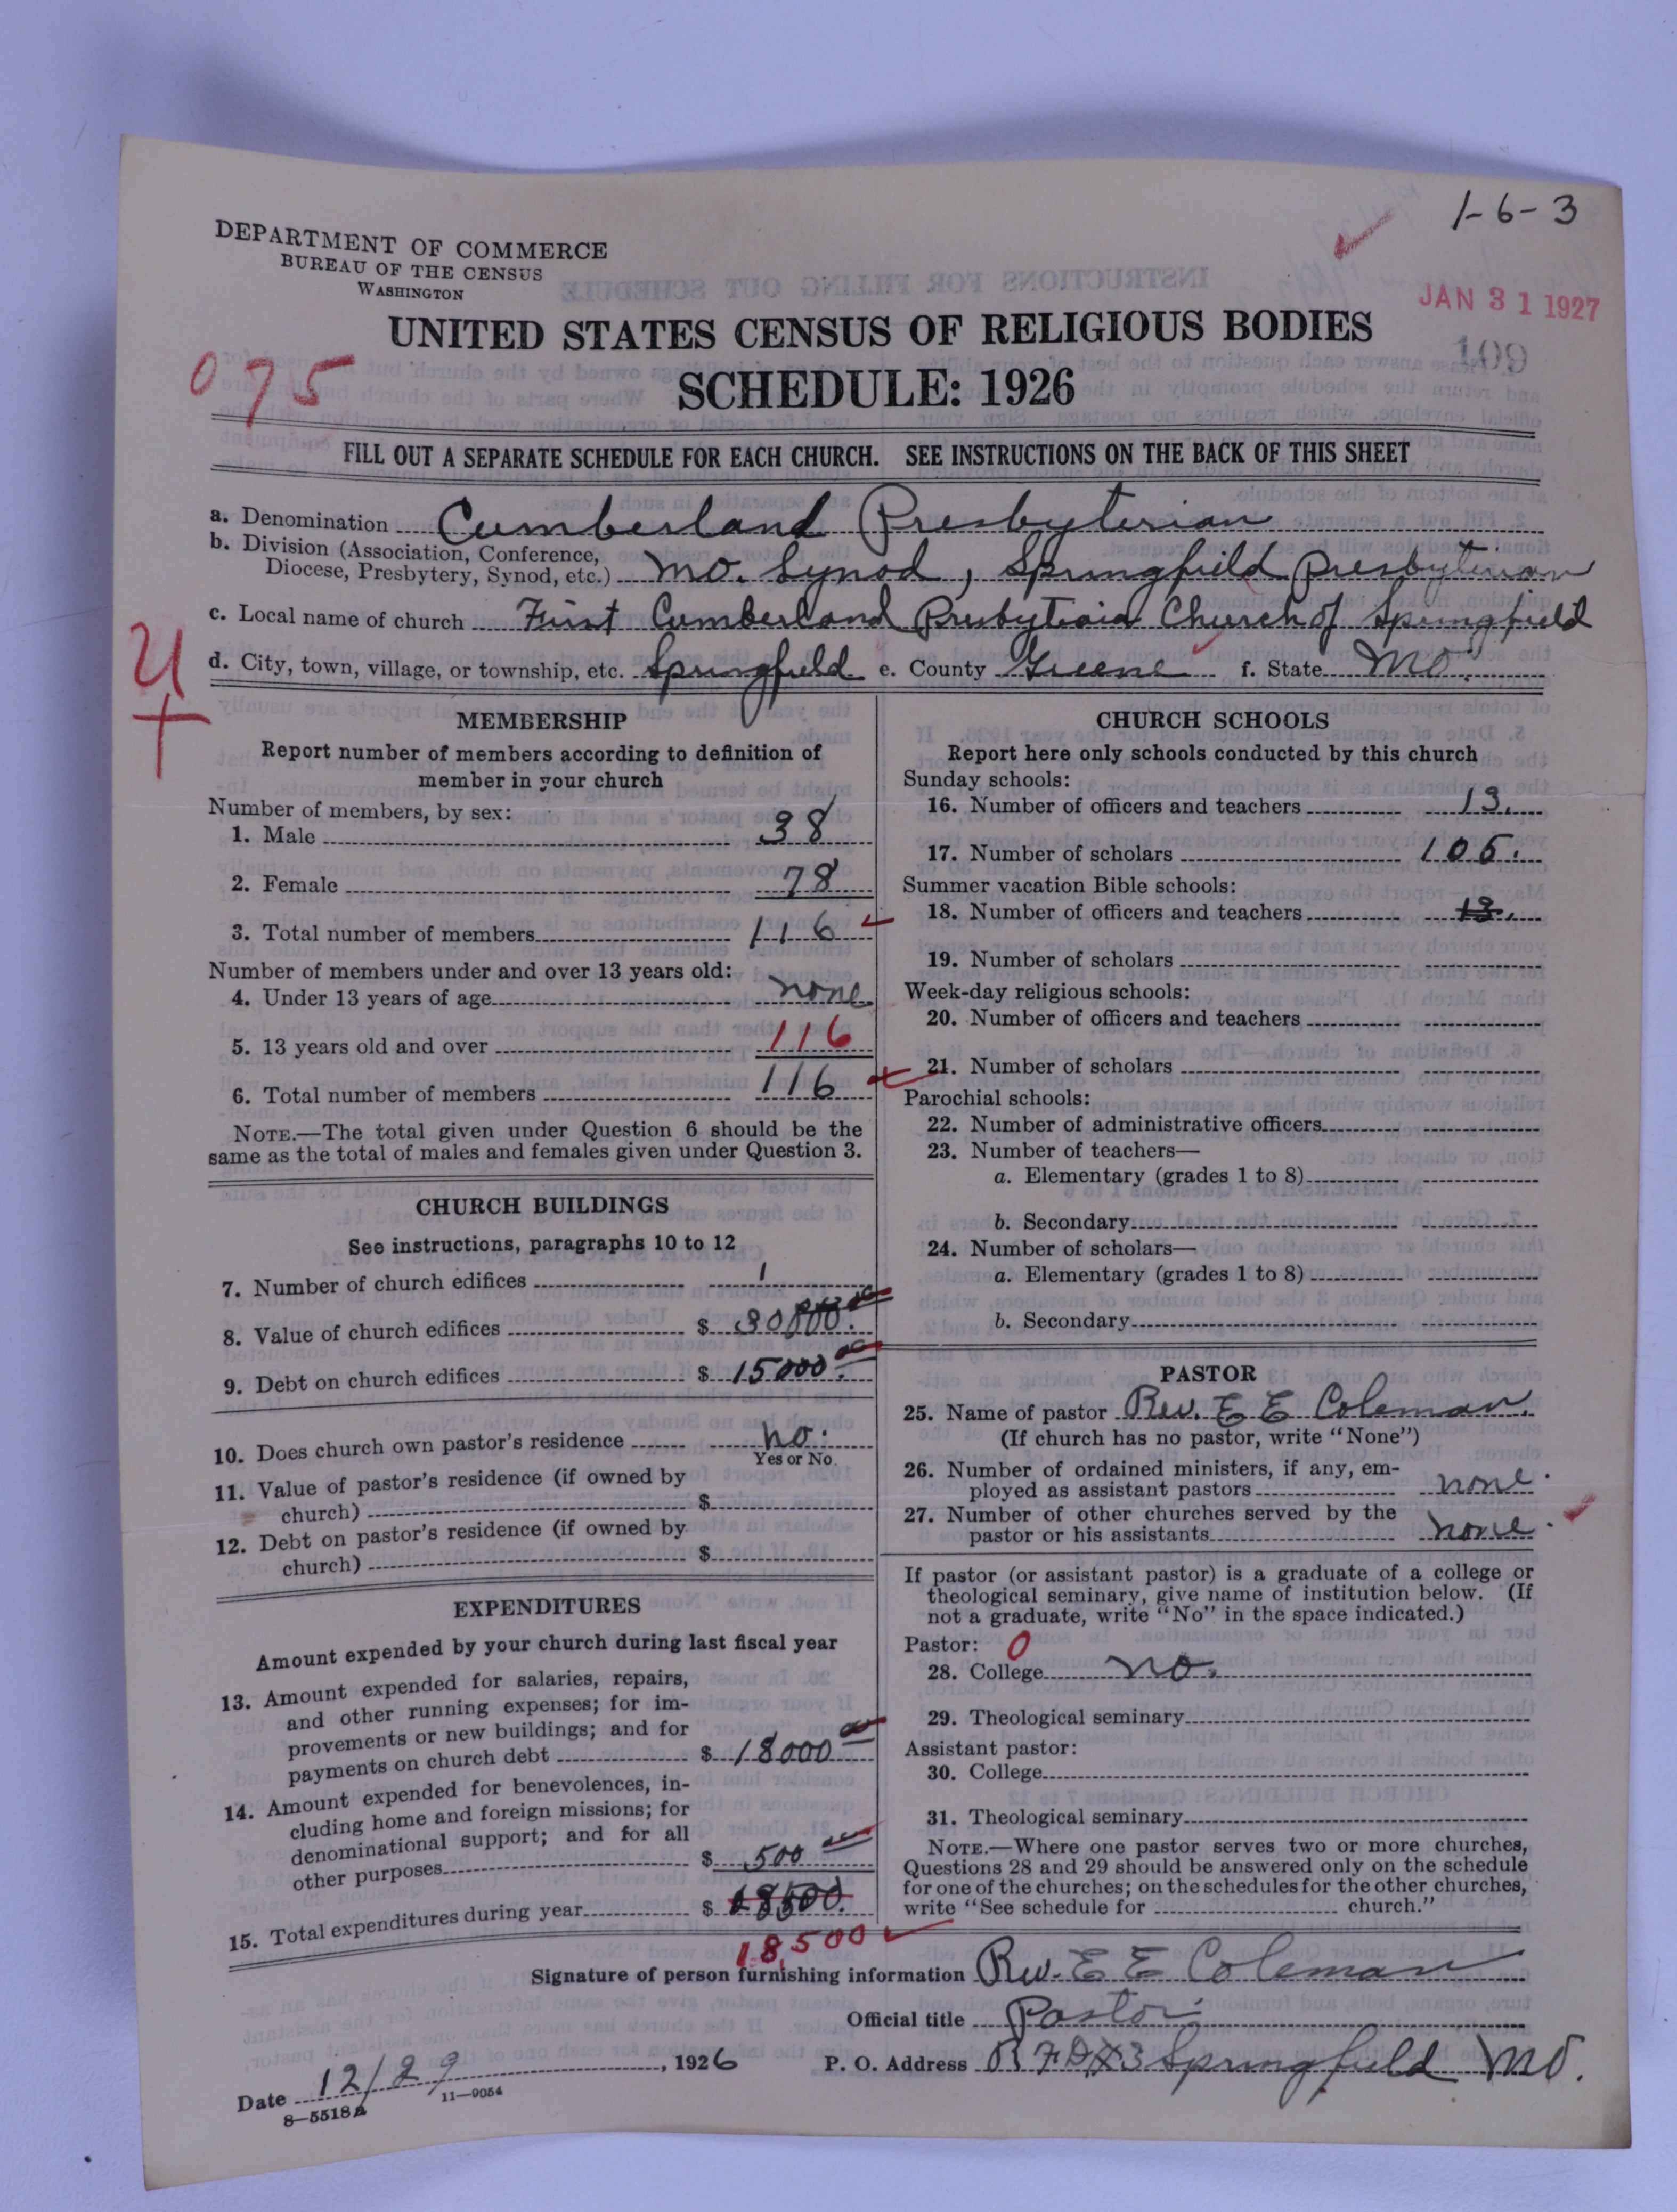 1-6-3
DEPARTMENT OF COMMERCE
BUREAU OF THE CENSUS
WASHINGTON
JAN 31 1927
UNITED STATES CENSUS OF RELIGIOUS BODIES
109
075
SCHEDULE: 1926
FILL OUT A SEPARATE SCHEDULE FOR EACH CHURCH. SEE INSTRUCTIONS ON THE BACK OF THIS SHEET
a. Denomination Cumberland Presbyterian
b. Division (Association, Conference,
Diocese, Presbytery, Synod, etc.) Mo. Synod, Springfield Presbyterian
c. Local name of church First Cumberland Presbyteria Church of Springfield
U
d. City, town, village, or township, etc. Springfield e. County Greene f. State Mo.
MEMBERSHIP
Report number of members according to definition of
member in your church
Number of members, by sex:
1. Male 38
2. Female 78
3. Total number of members 116
Number of members under and over 13 years old:
4. Under 13 years of age none.
5. 13 years old and over 116
6. Total number of members 116
NOTE.—The total given under Question 6 should be the
same as the total of males and females given under Question 3.
CHURCH BUILDINGS
See instructions, paragraphs 10 to 12
7. Number of church edifices 1
8. Value of church edifices $ 30000.00
9. Debt on church edifices $ 15000.00
10. Does church own pastor's residence no.
Yes or No
11. Value of pastor's residence (if owned by
church) $
12. Debt on pastor's residence (if owned by
church) $
EXPENDITURES
Amount expended by your church during last fiscal year
13. Amount expended for salaries, repairs,
and other running expenses; for im-
provements or new buildings; and for
payments on church debt $ 18000 00
14. Amount expended for benevolences, in-
cluding home and foreign missions; for
denominational support; and for all
other purposes $ 500 00
15. Total expenditures during year $ 18500.
18,500
CHURCH SCHOOLS
Report here only schools conducted by this church
Sunday schools:
16. Number of officers and teachers 13.
17. Number of scholars 106.
Summer vacation Bible schools:
18. Number of officers and teachers 13.
19. Number of scholars
Week-day religious schools:
20. Number of officers and teachers
21. Number of scholars
Parochial schools:
22. Number of administrative officers
23. Number of teachers—
a. Elementary (grades 1 to 8)
b. Secondary
24. Number of scholars—
a. Elementary (grades 1 to 8)
b. Secondary
PASTOR
25. Name of pastor Rev. E E Coleman.
(If church has no pastor, write "None")
26. Number of ordained ministers, if any, em-
ployed as assistant pastors none.
27. Number of other churches served by the
pastor or his assistants none.
If pastor (or assistant pastor) is a graduate of a college or
theological seminary, give name of institution below. (If
not a graduate, write "No" in the space indicated.)
Pastor: 0
28. College no.
29. Theological seminary
Assistant pastor:
30. College
31. Theological seminary
NOTE.—Where one pastor serves two or more churches,
Questions 28 and 29 should be answered only on the schedule
for one of the churches; on the schedules for the other churches,
write "See schedule for church."
Signature of person furnishing information Rev. E E Coleman
Official title Pastor
Date 12/29, 1926 P. O. Address RFD #3 Springfield Mo.
8—5518A 11—9054